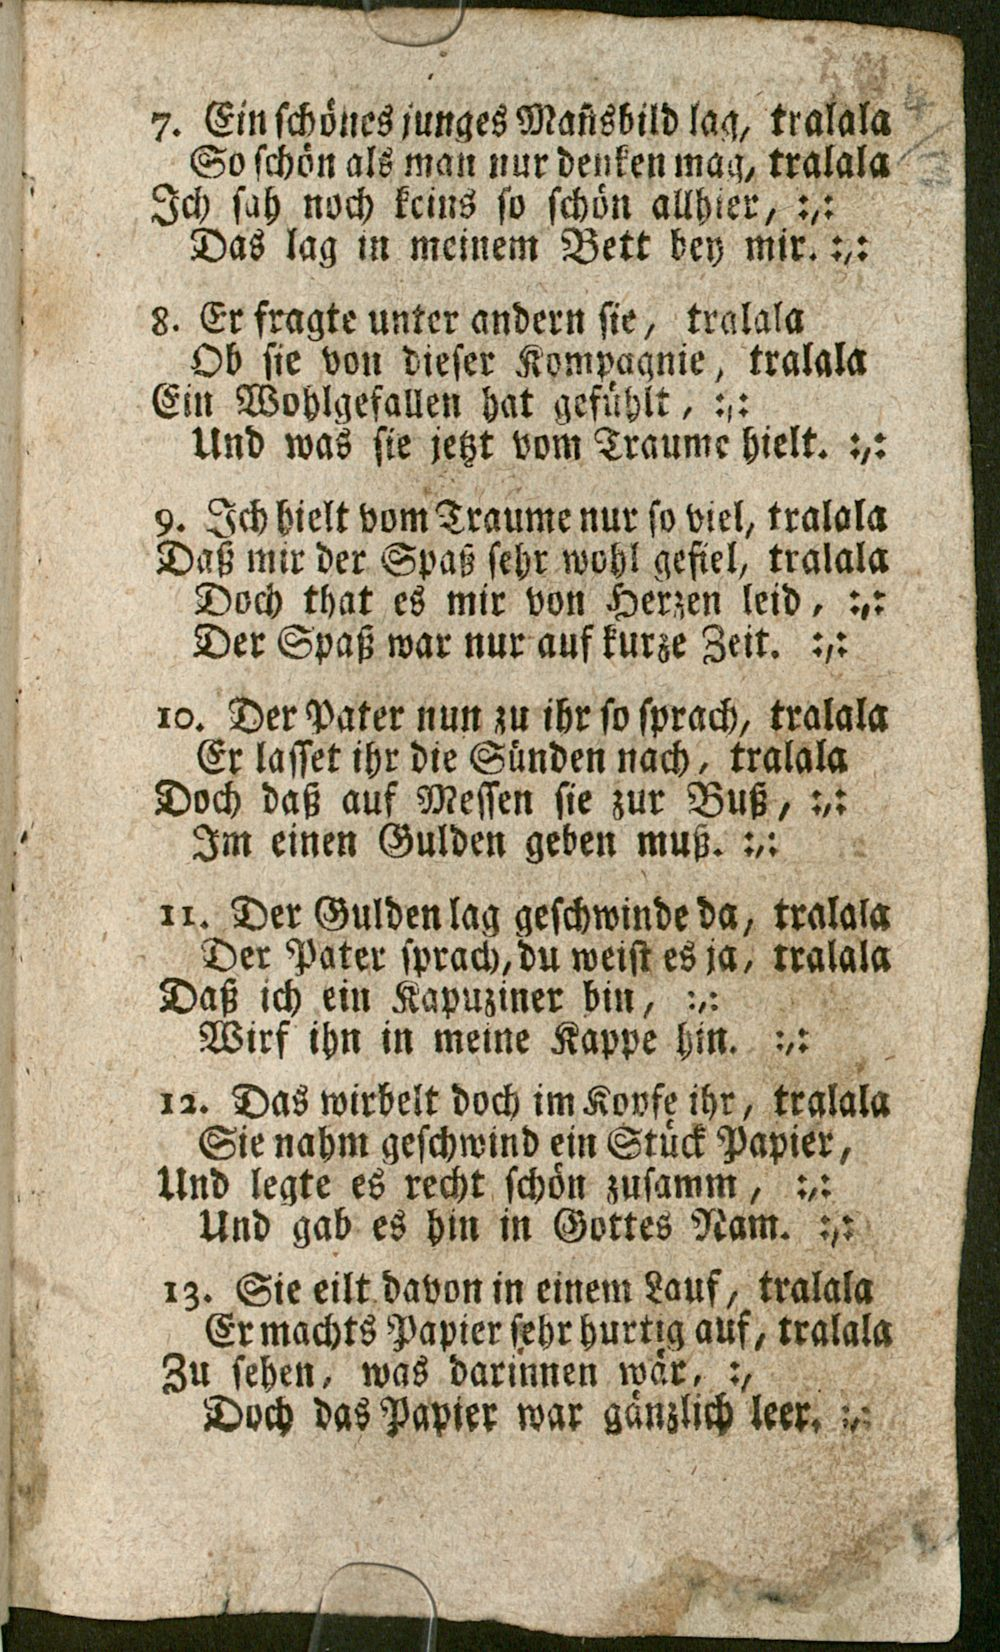 7. Ein schönes junges Mañsbild lag, tralala
So schön als man nur denken mag, tralala
Ich sah noch keins so schön allhier, :,:
Das lag in meinem Bett bey mir. :,:
8. Er fragte unter andern sie, tralala
Ob sie von dieser Kompagnie, tralala
Ein Wohlgefallen hat gefühlt, :,:
Und was sie jetzt vom Traume hielt. :,:
9. Ich hielt vom Traume nur so viel, tralala
Daß mir der Spaß sehr wohl gefiel, tralala
Doch that es mir von Herzen leid, :,:
Der Spaß war nur auf kurze Zeit. :,:
10. Der Pater nun zu ihr so sprach, tralala
Er lasset ihr die Sünden nach, tralala
Doch daß auf Messen sie zur Buß, :,:
Im einen Gulden geben muß. :,:
11. Der Gulden lag geschwinde da, tralala
Der Pater sprach, du weist es ja, tralala
Daß ich ein Kapuziner bin, :,:
Wirf ihn in meine Kappe hin. :,:
12. Das wirbelt doch im Kopfe ihr, tralala
Sie nahm geschwind ein Stück Papier,
Und legte es recht schön zusamm, :,:
Und gab es hin in Gottes Nam. :,:
13. Sie eilt davon in einem Lauf, tralala
Er machts Papier sehr hurtig auf, tralala
Zu sehen, was darinnen wär, :,
Doch das Papier war gänzlich leer. :,: